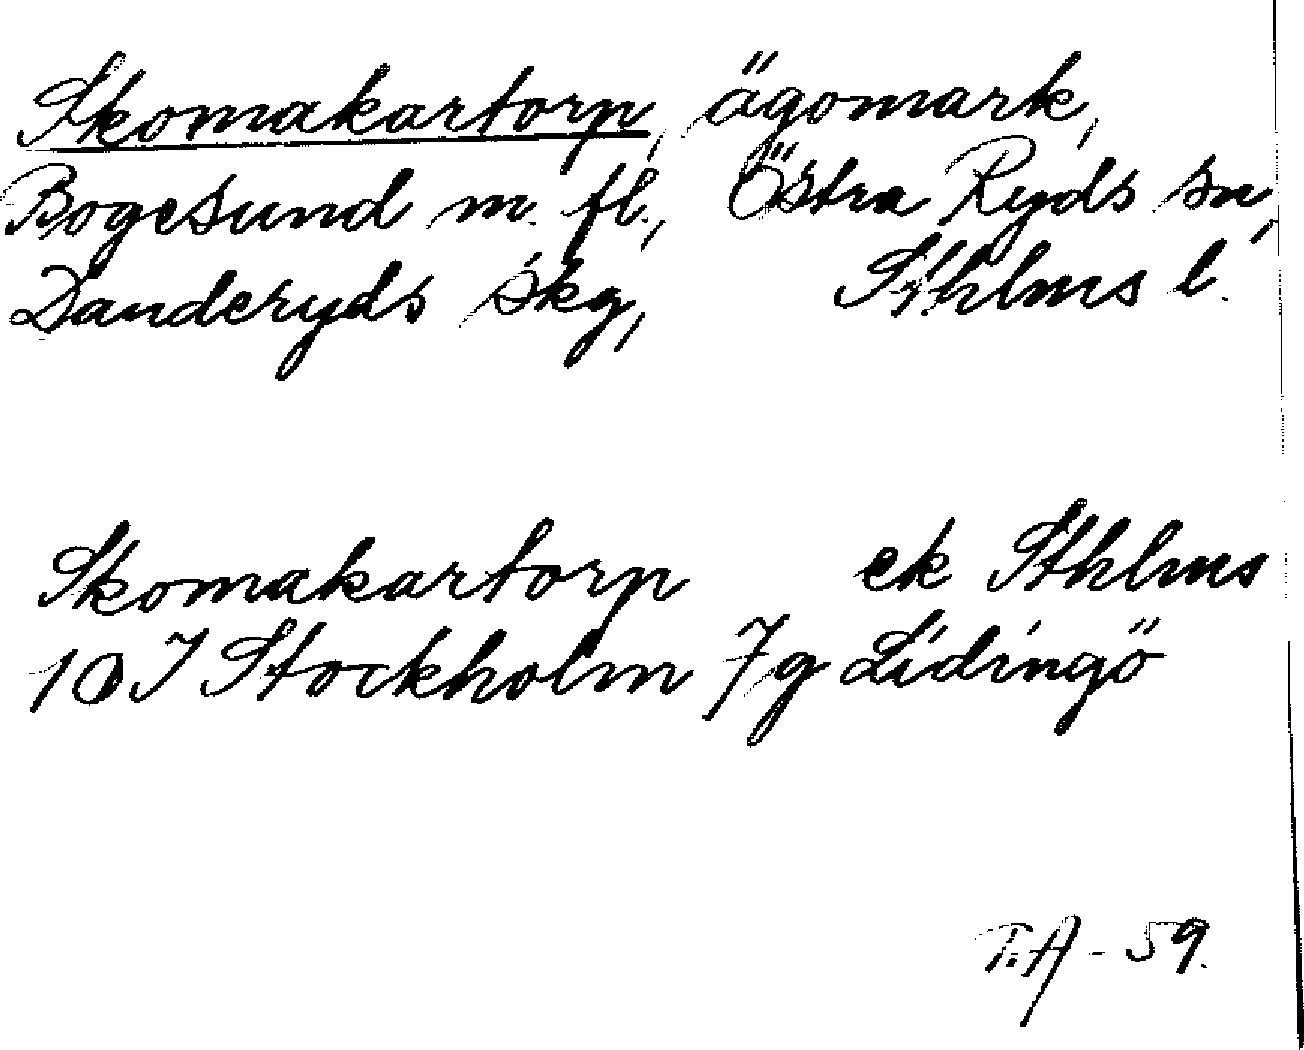 Skomakartorp, ägomark,
Bogesund m. fl., Östra Ryds sn,
Danderyds skg, Sthlms l.
Skomakartorp ek Sthlms
10 I Stockholm 7g Lidingö
T.A - 59.